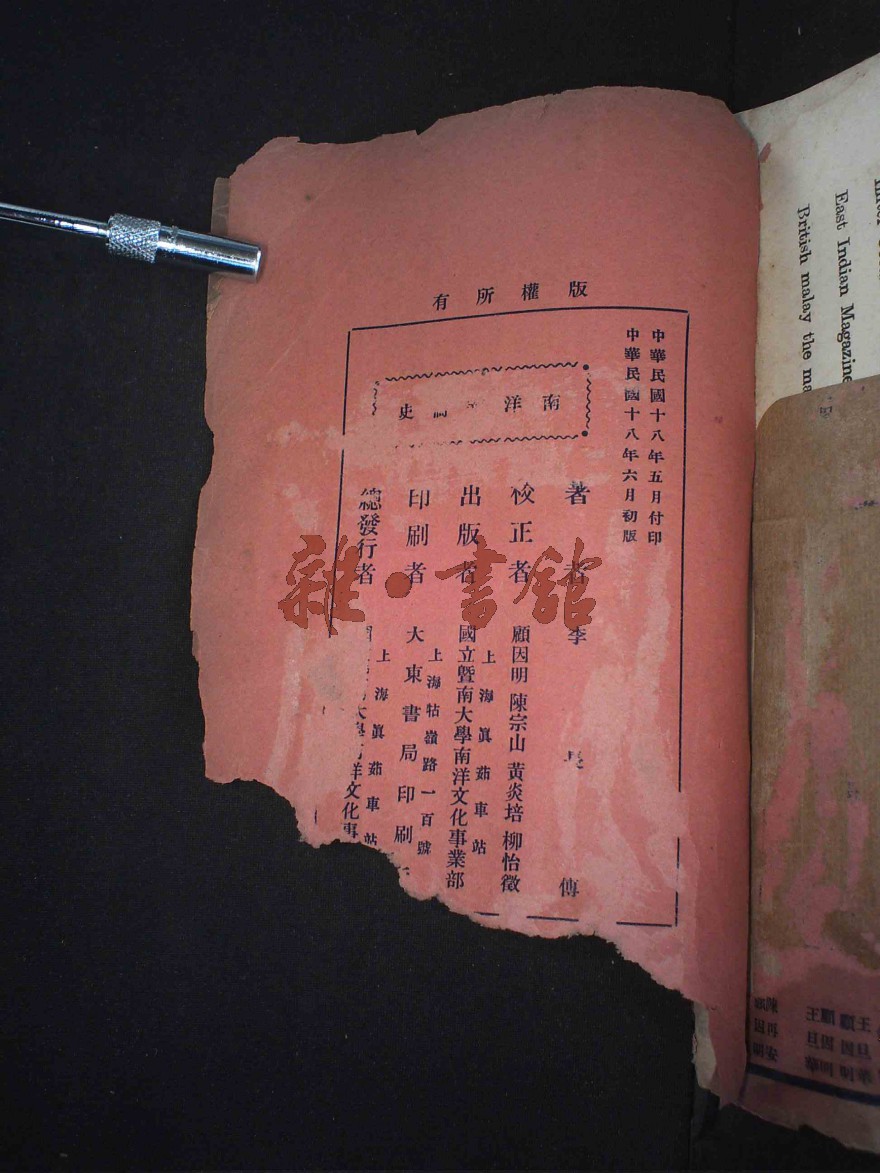 版權所有
中華民國十八年五月付印
中華民國十八年六月初版
南洋 史
著者 李長傅
校正者 顧因明 陳宗山 黃炎培 柳怡徵
上海眞茹車站
出版者 國立暨南大學南洋文化事業部
上海牯嶺路一百號
印刷者 大東書局印刷
上海眞茹車站
總發行者 大學 洋文化事
雜·書館
East Indian Magazine
British malay the ma